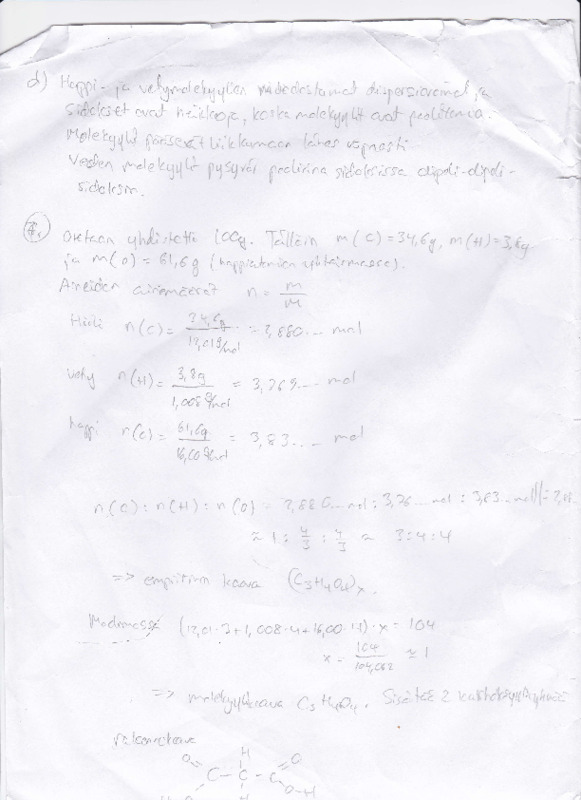 d) Happi- ja vetymolekyylien väliset dispersiovoimat ja
sidokset ovat heikkoja, koska molekyylit ovat poolittomia.
Molekyylit pääsevät liikkumaan lähes vapaasti.
Veden molekyylit pysyvät poolisina sidoksissa dipoli-dipoli-
sidoksin.
7. Otetaan yhdistettä 100g. Tällöin m(C)=34,6g, m(H)=3,8g
ja m(O) = 61,6g (happiatomien yhteismassa).
Aineiden ainemäärät n = m/M
Hiili n(C) = 34,6g / 12,01g/mol = 2,880... mol
vety n(H) = 3,8g / 1,008g/mol = 3,769... mol
happi n(O) = 61,6g / 16,00g/mol = 3,83... mol
n(C) : n(H) : n(O) = 2,880... mol : 3,76... mol : 3,83... mol ||:2,88
≈ 1 : 4/3 : 4/3 ≈ 3:4:4
=> empiirinen kaava (C3H4O4)x.
(12,01·3+1,008·4+16,00·4)·x = 104
x = 104 / 104,062 ≈ 1
=> molekyylikaava C3H4O4. Sisältää 2 karboksyyliryhmää
rakennekaava
O H O
C - C - C
H O-H